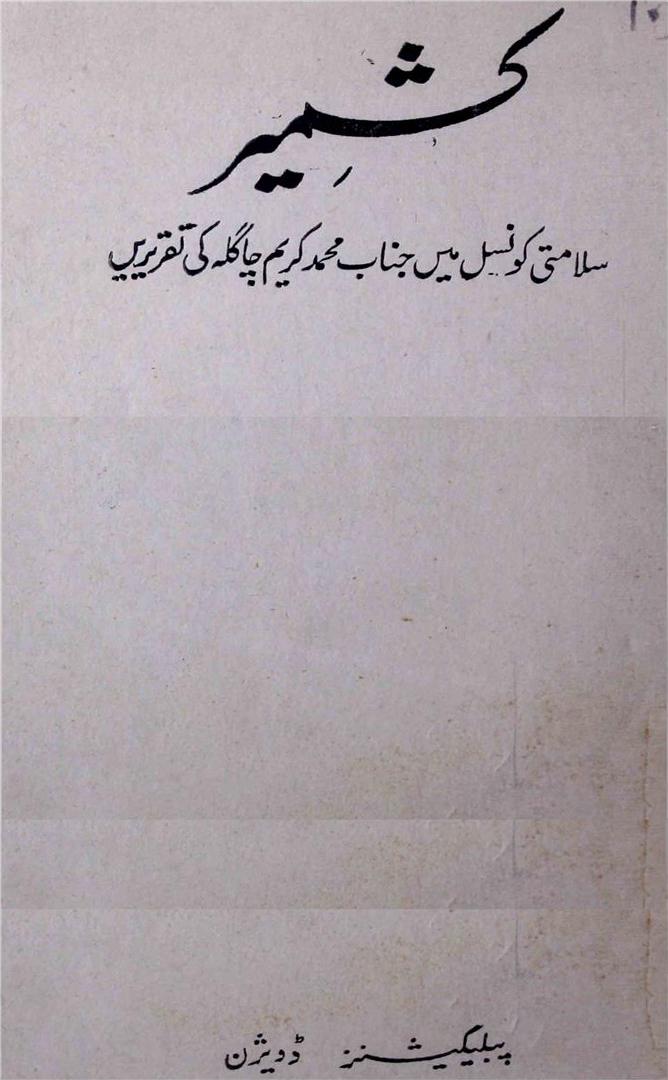 کشمیر
سلامتی کونسل میں جناب محمد کریم چاگلہ کی تقریریں
پبلیکیشنز ڈویژن